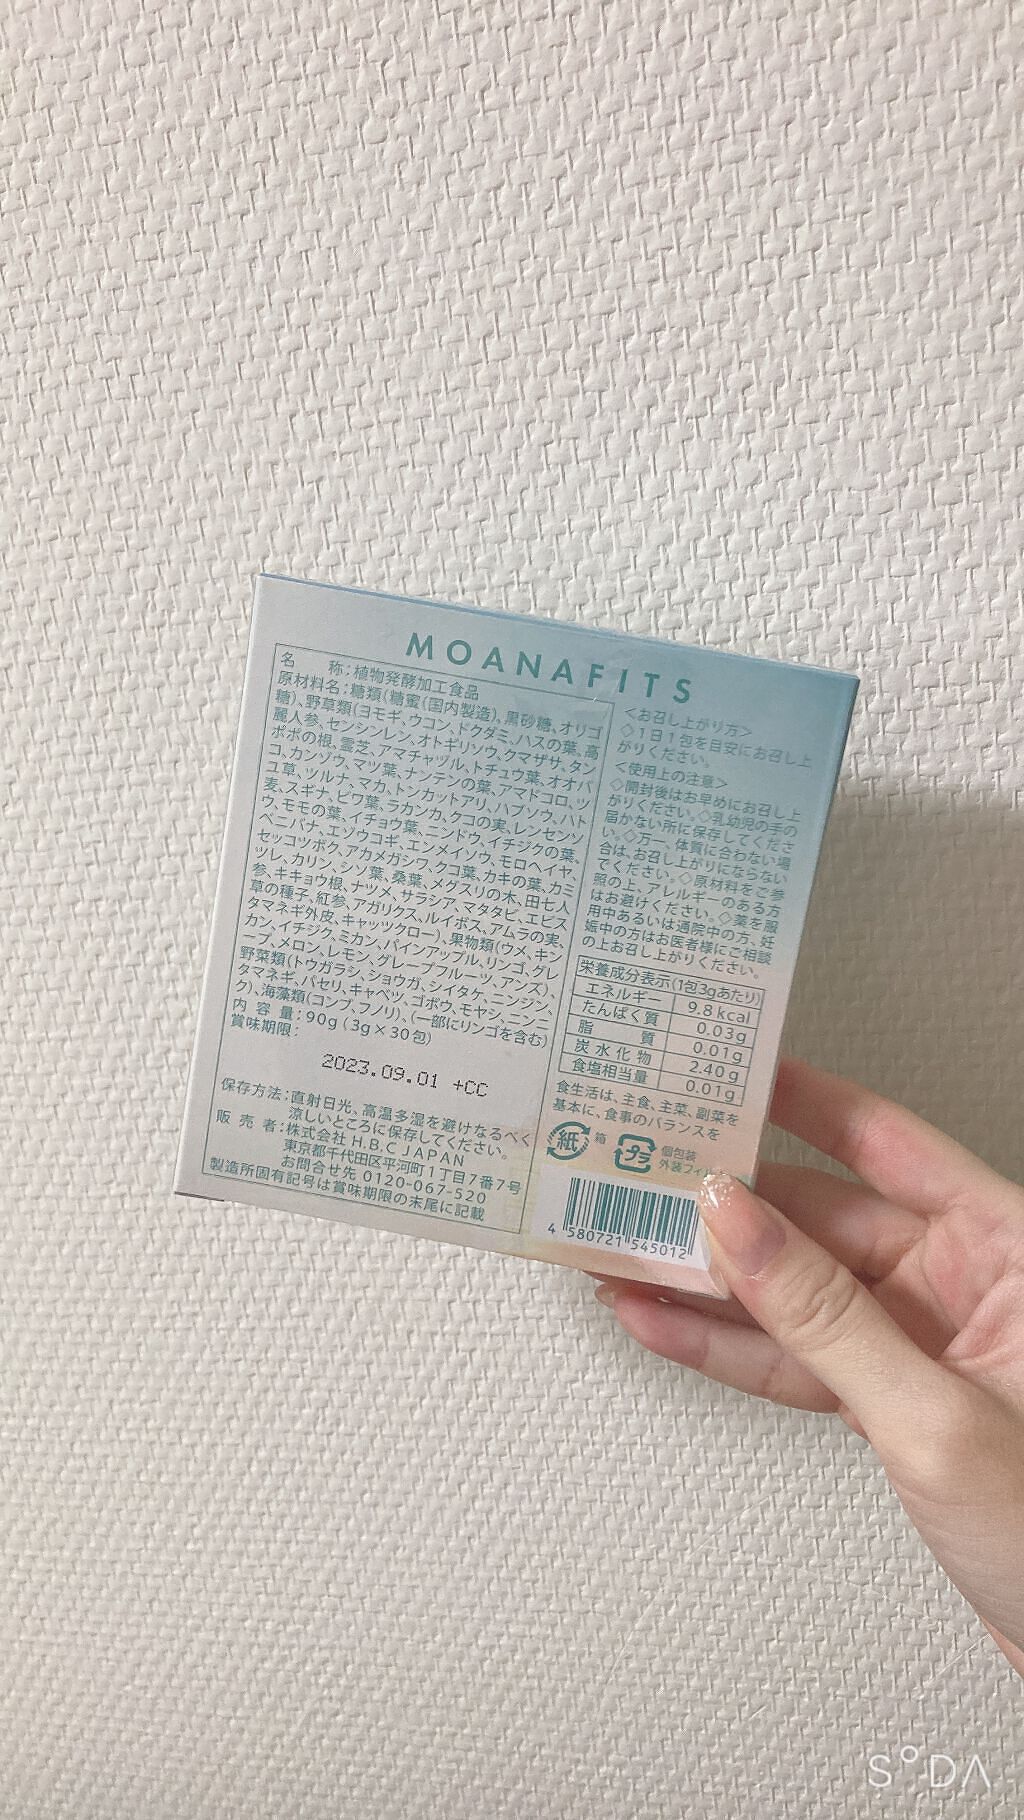 MOANAFITS
名　　称：植物発酵加工食品
原材料名：糖類（糖蜜（国内製造）、黒砂糖、オリゴ
糖）、野草類（ヨモギ、ウコン、ドクダミ、ハスの葉、高
麗人参、センシンレン、オトギリソウ、クマザサ、タン
ポポの根、霊芝、アマチャヅル、トチュウ葉、オオバ
コ、カンゾウ、マツ葉、ナンテンの葉、アマドコロ、ツ
ユ草、ツルナ、マカ、トンカットアリ、ハブソウ、ハト
麦、スギナ、ビワ葉、ラカンカ、クコの実、レンセンソ
ウ、モモの葉、イチョウ葉、ニンドウ、イチジクの葉、
ベニバナ、エゾウコギ、エンメイソウ、モロヘイヤ、
セッコツボク、アカメガシワ、クコ葉、カキの葉、カミ
ツレ、カリン、シソ葉、桑葉、メグスリの木、田七人
参、キキョウ根、ナツメ、サラシア、マタタビ、エビス
草の種子、紅参、アガリクス、ルイボス、アムラの実、
タマネギ外皮、キャッツクロー）、果物類（ウメ、キン
カン、イチジク、ミカン、パインアップル、リンゴ、グレ
ープ、メロン、レモン、グレープフルーツ、アンズ）、
野菜類（トウガラシ、ショウガ、シイタケ、ニンジン、
タマネギ、パセリ、キャベツ、ゴボウ、モヤシ、ニンニ
ク）、海藻類（コンブ、フノリ）、（一部にリンゴを含む）
内　容　量：90g（3g×30包）
賞味期限：
2023.09.01 +CC
保存方法：直射日光、高温多湿を避けなるべく
涼しいところに保存してください。
販　売　者：株式会社 H.B.C JAPAN
東京都千代田区平河町1丁目7番7号
お問合せ先 0120-067-520
製造所固有記号は賞味期限の末尾に記載
＜お召し上がり方＞
◇1日1包を目安にお召し上
がりください。
＜使用上の注意＞
◇開封後はお早めにお召し上
がりください。◇乳幼児の手の
届かない所に保存してくださ
い。◇万一、体質に合わない場
合は、お召し上がりにならない
でください。◇原材料をご参
照の上、アレルギーのある方
はお避けください。◇薬を服
用中あるいは通院中の方、妊
娠中の方はお医者様にご相談
の上お召し上がりください。
栄養成分表示（1包3gあたり）
エネルギー 9.8 kcal
たんぱく質 0.03g
脂　　質 0.01g
炭水化物 2.40g
食塩相当量 0.01g
食生活は、主食、主菜、副菜を
基本に、食事のバランスを
紙 箱 プラ 個包装
外装フィル
4 580721 545012
SODA